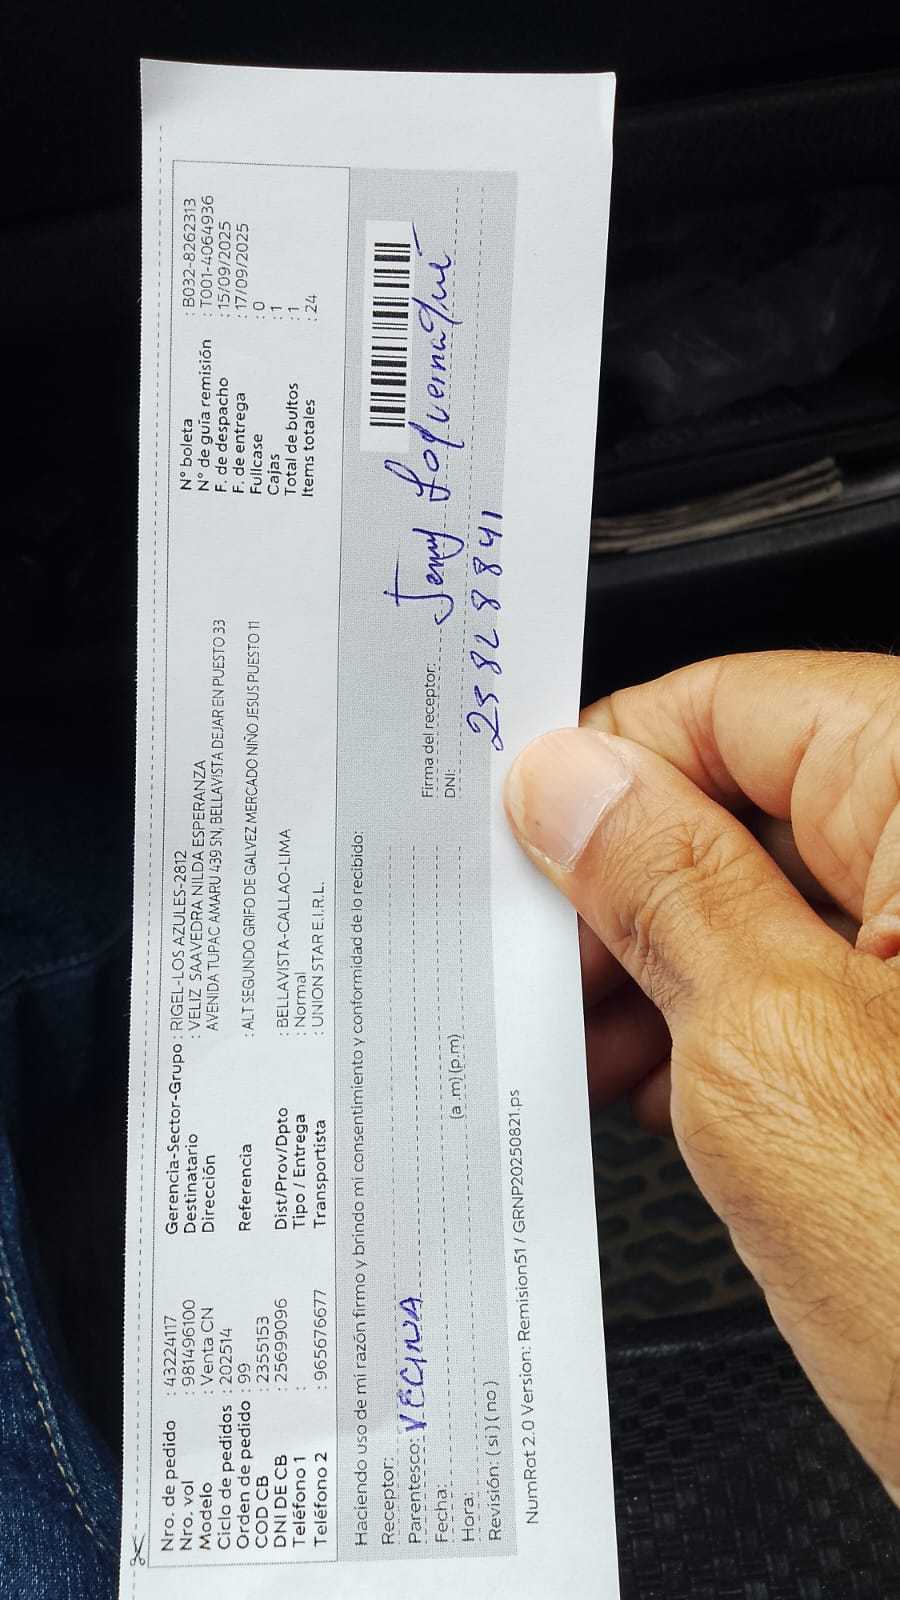 Nro. de pedido : 43224117
Nro. vol : 981496100
Modelo : Venta CN
Ciclo de pedidos : 202514
Orden de pedido : 99
COD CB : 2355153
DNI DE CB : 25699096
Teléfono 1 :
Teléfono 2 : 965676677
Gerencia-Sector-Grupo : RIGEL-LOS AZULES-2812
Destinatario : VELIZ SAAVEDRA NILDA ESPERANZA
Dirección AVENIDA TUPAC AMARU 439 SN, BELLAVISTA DEJAR EN PUESTO 33
Referencia : ALT SEGUNDO GRIFO DE GALVEZ MERCADO NIÑO JESUS PUESTO 11
Dist/Prov/Dpto : BELLAVISTA-CALLAO-LIMA
Tipo / Entrega : Normal
Transportista : UNION STAR E.I.R.L.
N° boleta : B032-8262313
N° de guía remisión : T001-4064936
F. de despacho : 15/09/2025
F. de entrega : 17/09/2025
Fullcase : 0
Cajas : 1
Total de bultos : 1
Items totales : 24
Haciendo uso de mi razón firmo y brindo mi consentimiento y conformidad de lo recibido:
Receptor:
Parentesco: VECINA
Fecha:
Hora: (a .m) (p.m)
Revisión: ( si ) ( no )
Firma del receptor: Jenny
DNI: 25828841
NumRot 2.0 Version: Remision51 / GRNP20250821.ps